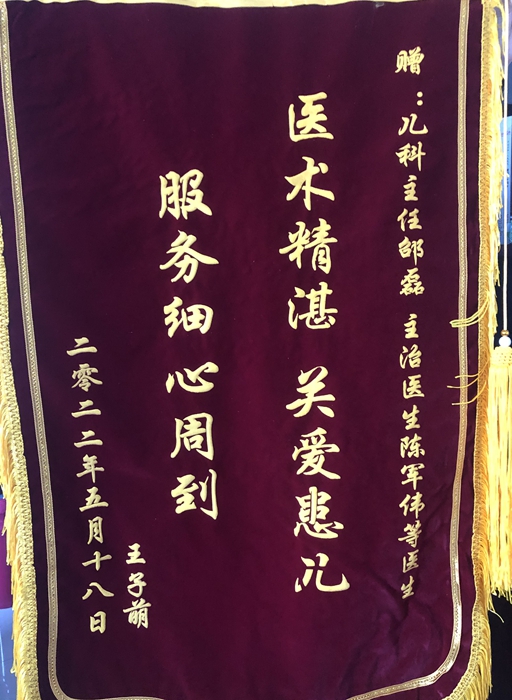 赠：儿科主任邰磊 主治医生陈军伟等医生
医术精湛 关爱患儿
服务细心周到
王子萌
二零二二年五月十八日